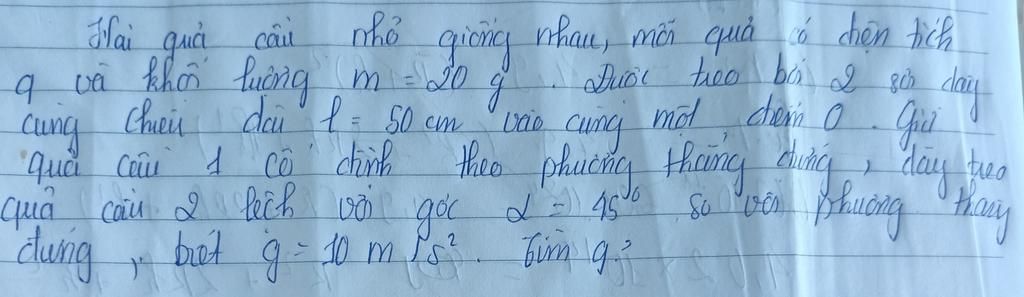 Hai quả cầu nhỏ giống nhau, mỗi quả có điện tích
q và khối lượng m = 20 g. Được treo bởi 2 sợi dây
cùng chiều dài l = 50 cm vào cùng một điểm O. Giữ
quả cầu 1 cố định theo phương thẳng đứng, dây treo
quả cầu 2 lệch với góc α = 45° so với phương thẳng
đứng, biết g = 10 m/s². Tìm q?